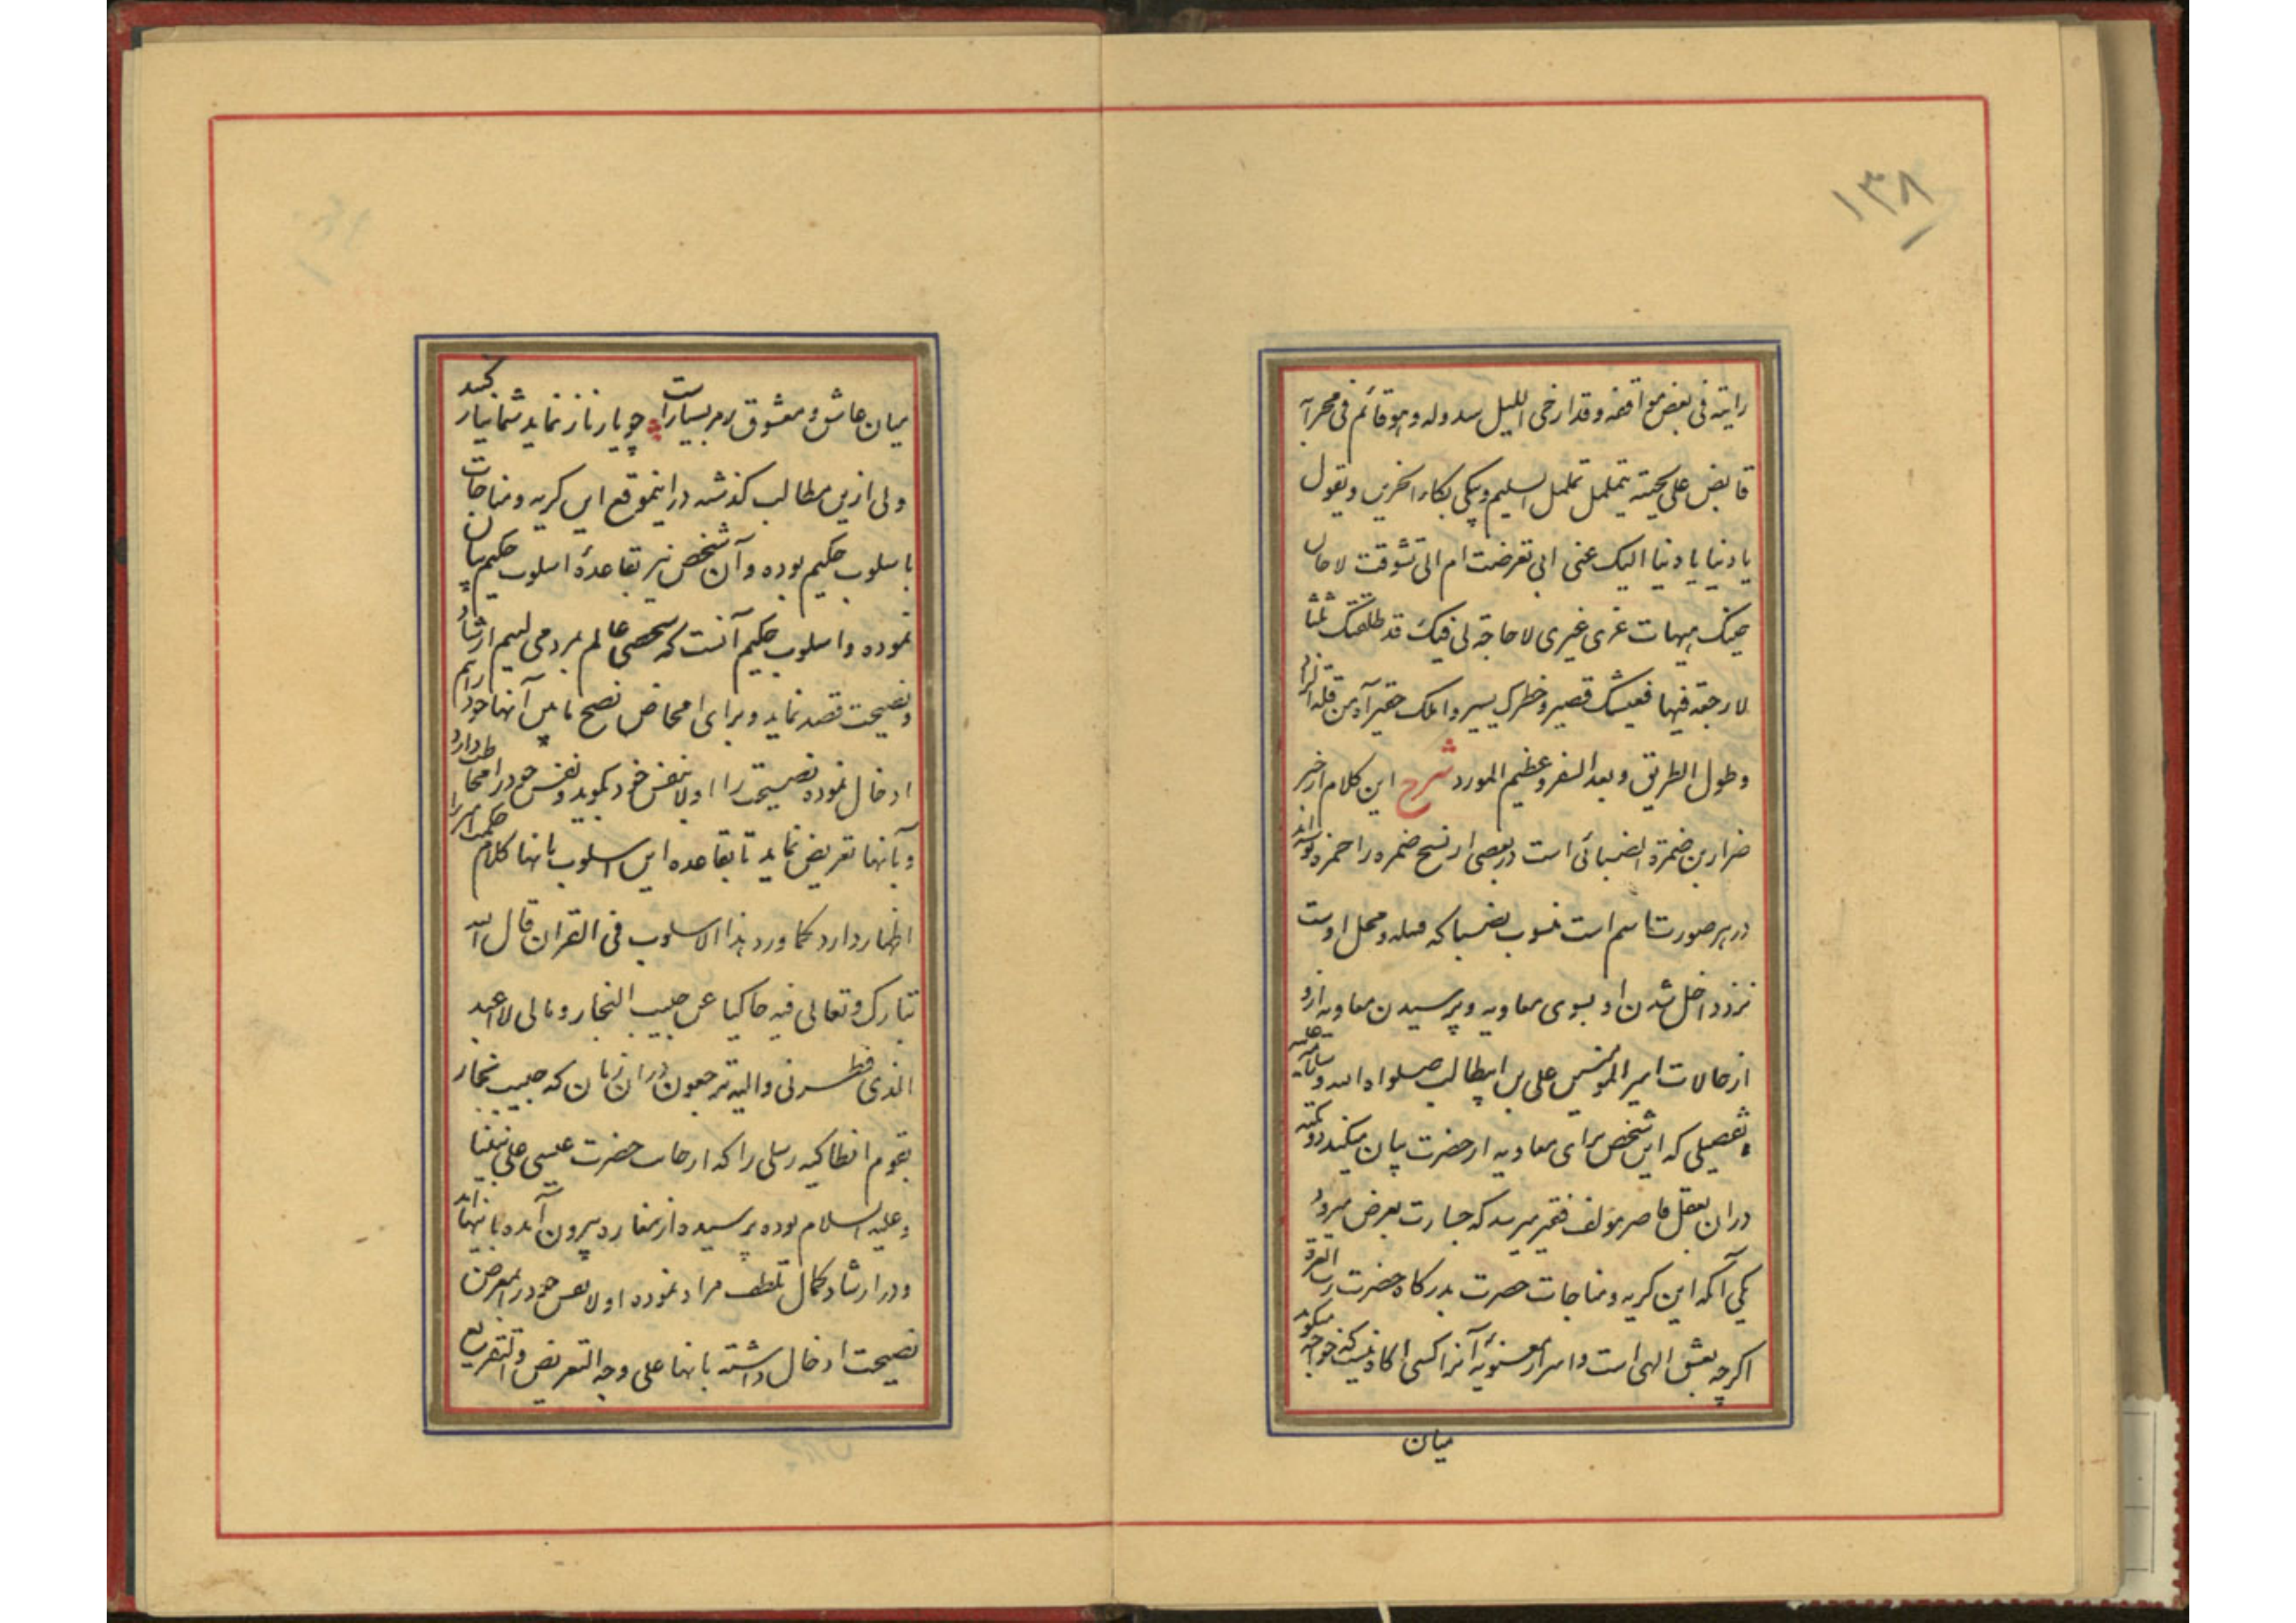 ۱۳۸
رایته فی بعض مواقفه و قد ارخی اللیل سدوله و هو قائم فی محرابه
قابض علی لحیته یتململ تململ السلیم و یبکی بکاء الحزین و یقول
یا دنیا یا دنیا الیک عنی ابی تعرضت ام الی تشوقت لا حان
حینک هیهات غری غیری لا حاجة لی فیک قد طلقتک ثلثا
لا رجعة فیها فعیشک قصیر و خطرک یسیر و املک حقیر آه من قلة الزاد
و طول الطریق و بعد السفر و عظیم المورد شرح این کلام از خبر
ضرار بن ضمرة الضبائی است در بعضی از نسخ ضمره را حمزه نوشته‌اند
در هر صورت اسم است منسوب بضبا که قبیله و محل اوست
نزد داخل شدن او بسوی معاویه و پرسیدن معاویه ازو
از حالات امیر المومنین علی بن ابیطالب صلواه الله و سلامه علیه
بتفصیلی که این شخص برای معاویه از حضرت بیان میکند دو نکته
در ان بعقل قاصر مولف فقیر میرسد که جسارت بعرض میرود
یکی آنکه این کریه و مناجات حضرت بدرکاه حضرت رب العزة
اکرچه بعشق الهی است و اسرار معنویه آنرا کسی اکاه نیست که خواجه میکوید
میان
میان عاشق و معشوق رمز بسیار است چو یار ناز نماید شما نیاز کنید
ولی ازین مطالب کذشته در اینموقع این کریه و مناجات
باسلوب حکیم بوده و آن شخص نیز بقاعدهٔ اسلوب حکیم بیان
نموده و اسلوب حکیم آنست که شخصی عالم بمردمی لئیم ارشاد
و نصیحت قصد نماید و برای امحاض نصح مابین آنها خود را هم
ادخال نموده نصیحت را اولا بنفس خود بکوید و نفس خود را مخاطب دارد
و بآنها تعریض نماید تا بقاعده این اسلوب بانها کلام حکمت آمیز را
اظهار دارد کما ورد هذا الاسلوب فی القران قال الله
تبارک و تعالی فیه حاکیا عن حبیب النجار و مالی لا اعبد
الذی فطرنی و الیه ترجعون در ان زمان که حبیب نجار
بقوم انطاکیه رسلی را که از جانب حضرت عیسی علی نبینا
و علیه السلام بوده پرسیده از مغاره بیرون آمده بانها
و در ارشاد کمال تلطف مراد نموده اولا نفس خود را بمعرض
نصیحت ادخال داشته بانها علی وجه التعریض و التقریع